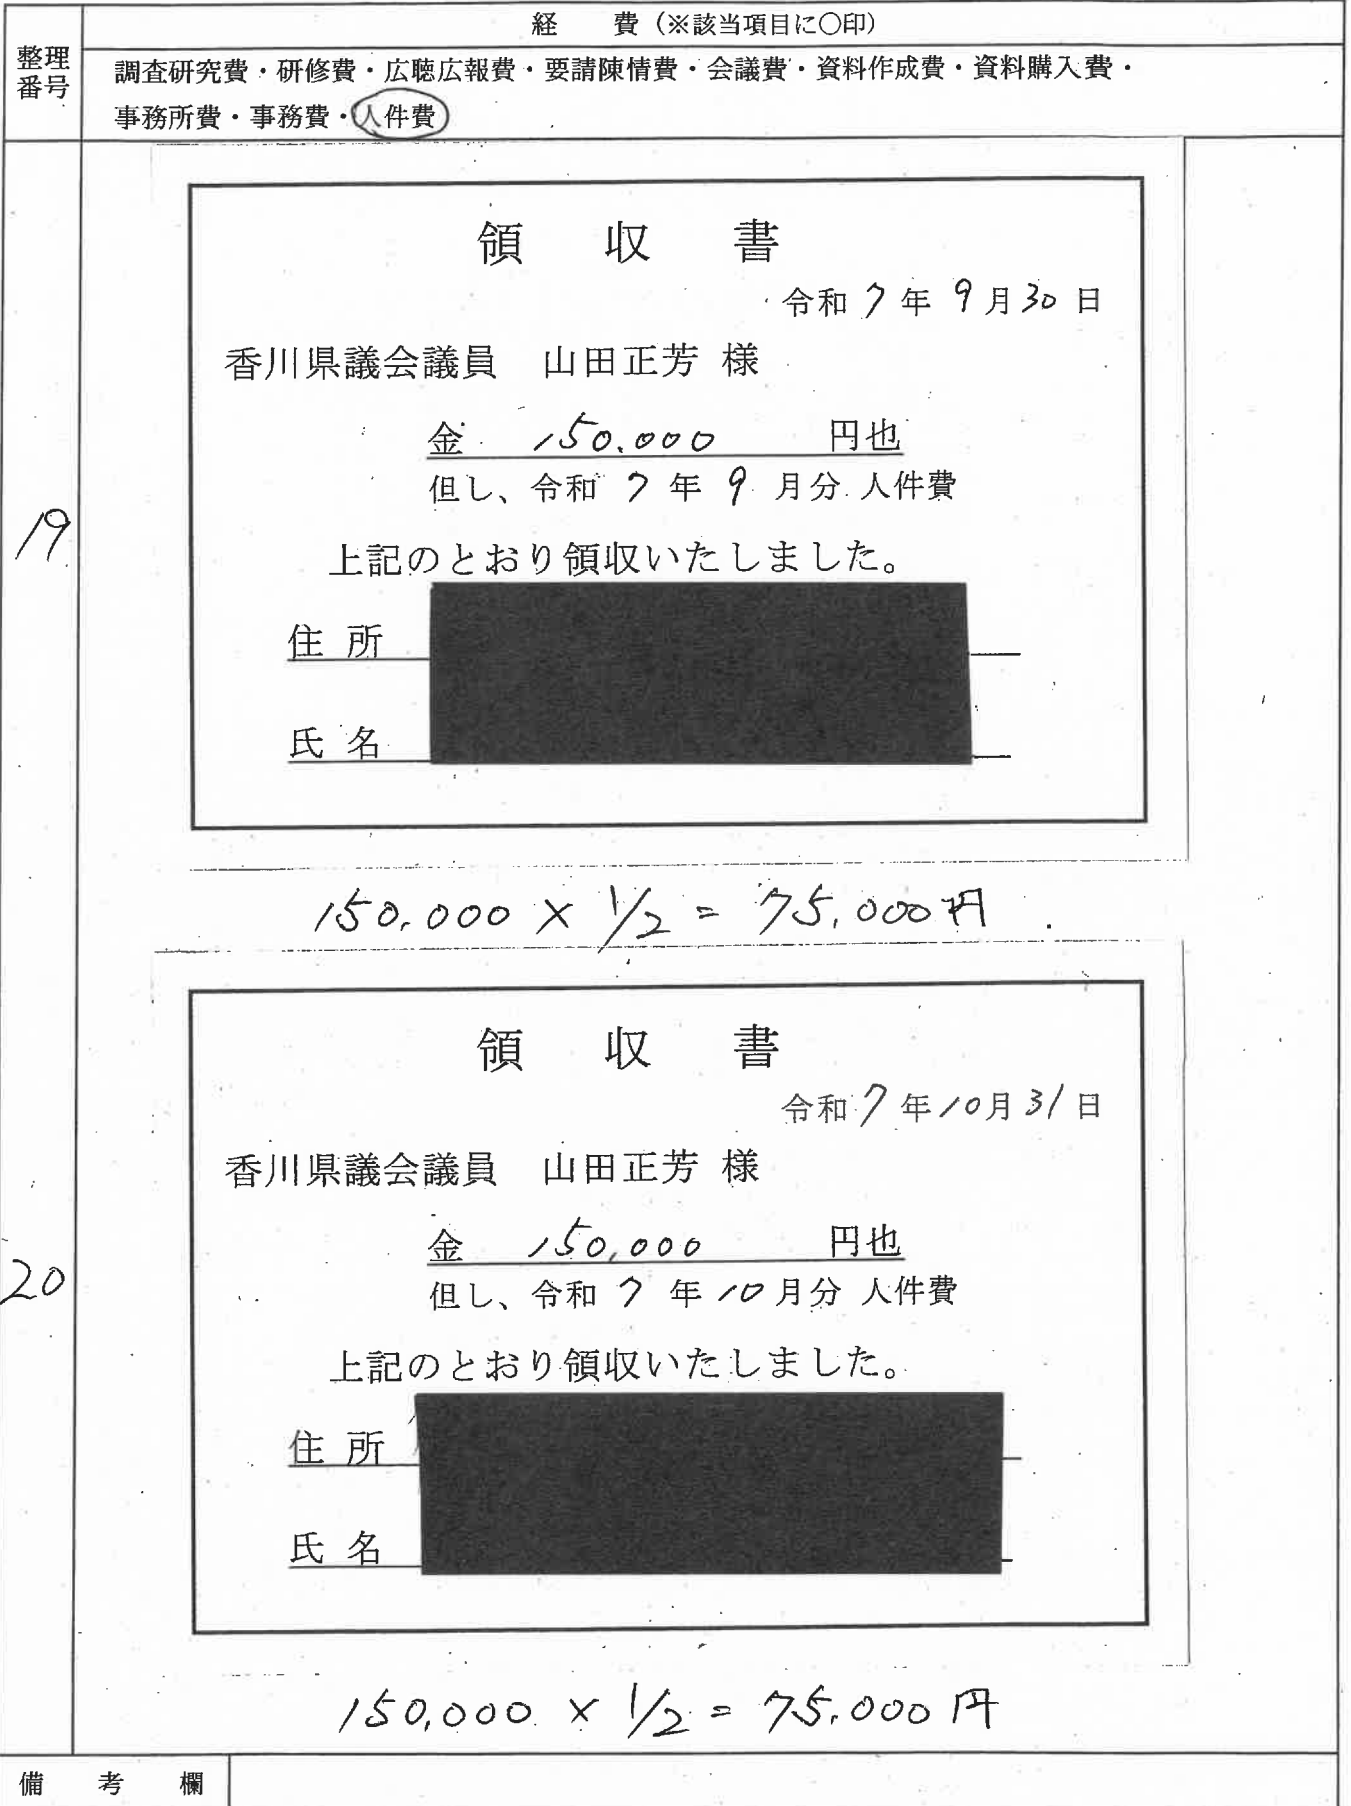 経 費（※該当項目に○印）
整理
番号
調査研究費・研修費・広聴広報費・要請陳情費・会議費・資料作成費・資料購入費・
事務所費・事務費・人件費
19
領 収 書
令和 7 年 9 月 30 日
香川県議会議員 山田正芳 様
金 150.000 円也
但し、令和 7 年 9 月分 人件費
上記のとおり領収いたしました。
住 所
氏 名
150.000 × 1/2 = 75,000円
20
領 収 書
令和 7 年 10 月 31 日
香川県議会議員 山田正芳 様
金 150,000 円也
但し、令和 7 年 10 月分 人件費
上記のとおり領収いたしました。
住 所
氏 名
150,000 × 1/2 = 75,000円
備 考 欄